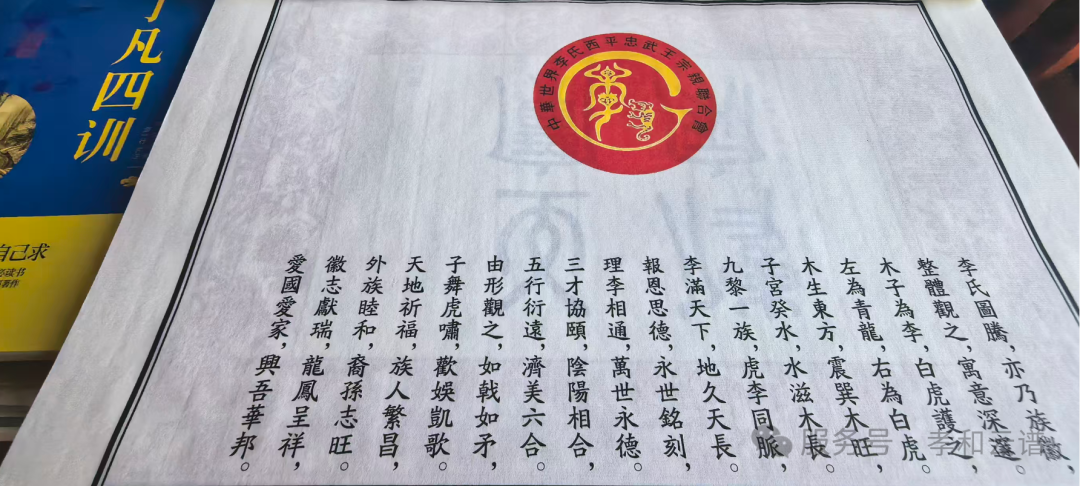 中華世界李氏西平忠武王宗親聯合會
李氏圖騰，亦乃族徽，
整體觀之，寓意深邃。
木子為李，白虎護之，
左為青龍，右為白虎。
木生東方，震巽木旺，
子宮癸水，水滋木長。
九黎一族，虎李同脈，
李滿天下，地久天長。
報恩思德，永世銘刻，
理李相通，萬世永德。
三才協頤，陰陽相合，
五行衍遠，濟美六合。
由形觀之，如戟如矛，
子舞虎嘯，歡娛凱歌。
天地祈福，族人繁昌，
外族睦和，裔孫志旺。
徽志獻瑞，龍鳳呈祥，
愛國愛家，興吾華邦。
了凡四训
自己求
服务号
孝和
谱